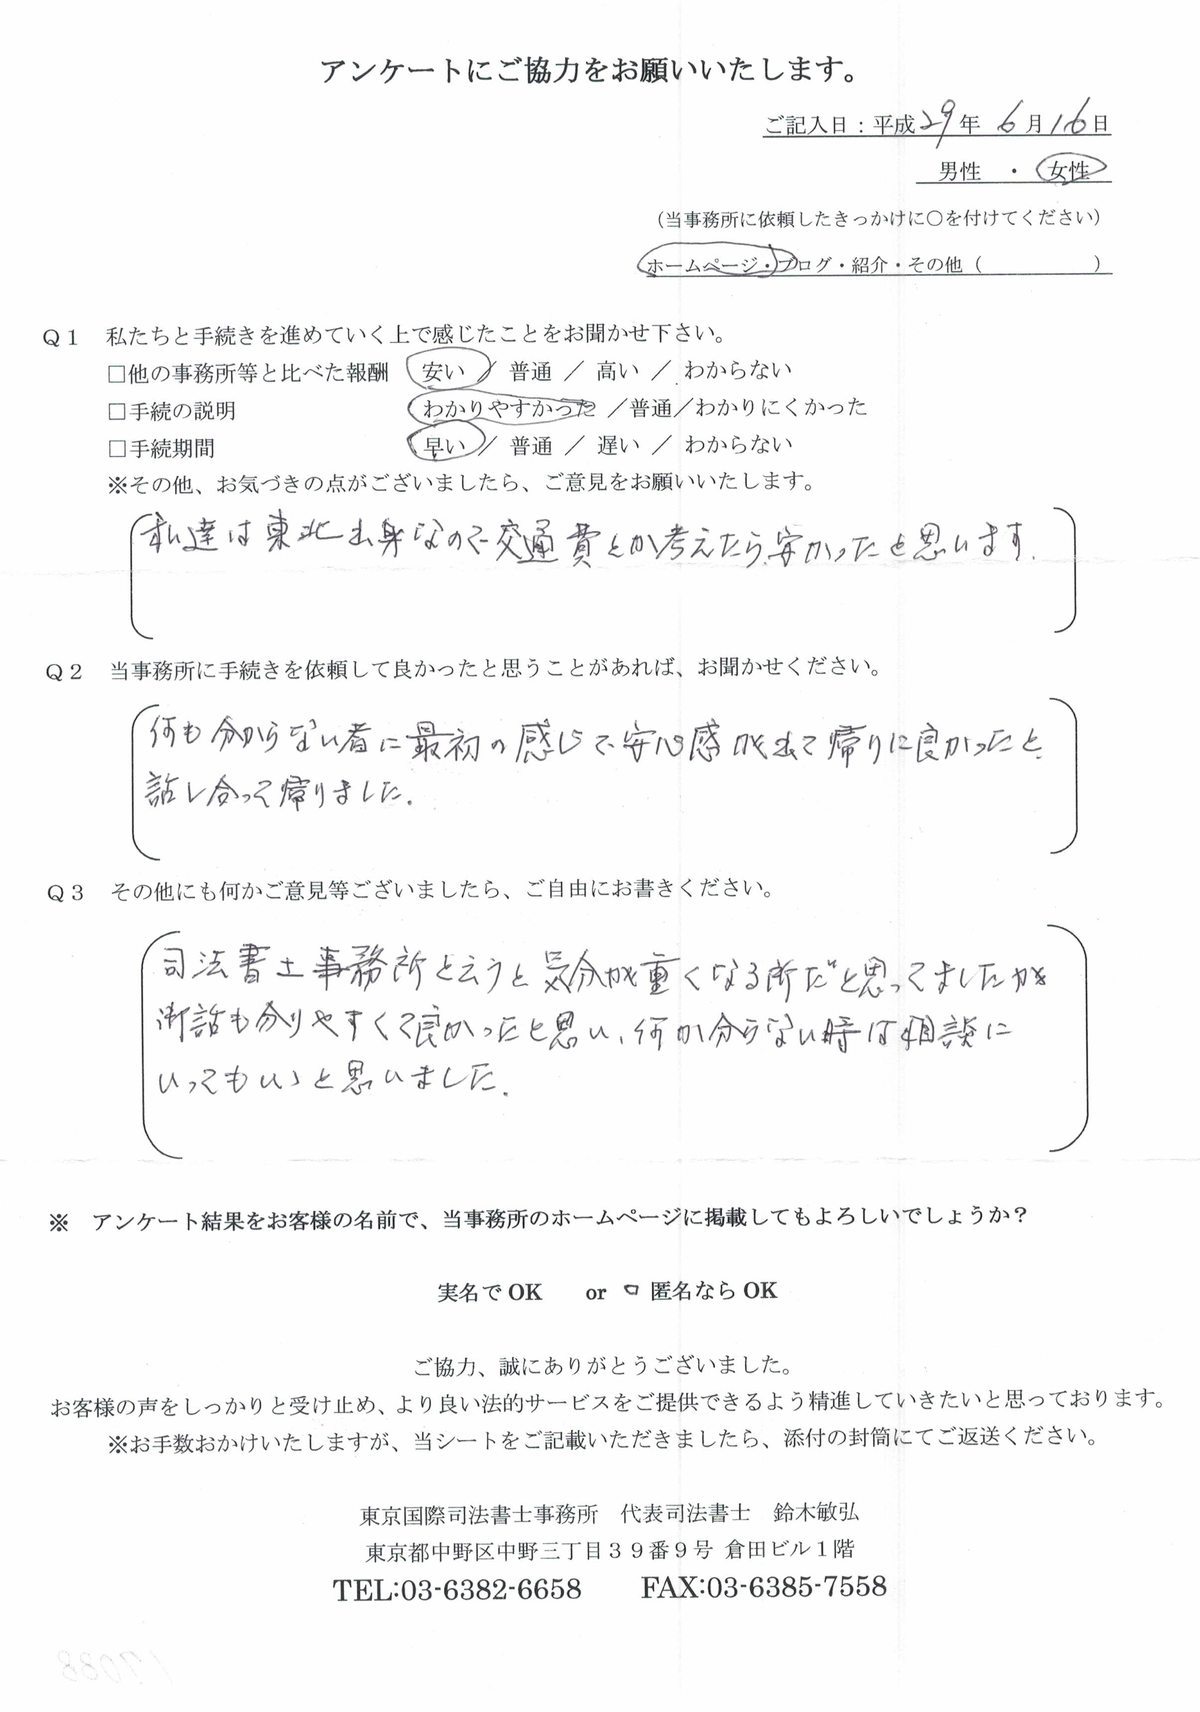 アンケートにご協力をお願いいたします。
ご記入日:平成29年 6月16日
男性 ・ 女性
(当事務所に依頼したきっかけに○を付けてください)
ホームページ・ブログ・紹介・その他( )
Q1 私たちと手続きを進めていく上で感じたことをお聞かせ下さい。
□他の事務所等と比べた報酬 安い / 普通 / 高い / わからない
□手続の説明 わかりやすかった /普通/わかりにくかった
□手続期間 早い / 普通 / 遅い / わからない
※その他、お気づきの点がございましたら、ご意見をお願いいたします。
私達は東北出身なので交通費とか考えたら、安かったと思います.
Q2 当事務所に手続きを依頼して良かったと思うことがあれば、お聞かせください。
何も分からない者に最初の感じで安心感が出て帰りに良かったと、
話し合って帰りました.
Q3 その他にも何かご意見等ございましたら、ご自由にお書きください。
司法書士事務所と云うと気分が重くなる所だと思ってましたが
話も分りやすくて良かったと思い、何か分らない時は相談に
いってもいゝと思いました.
※ アンケート結果をお客様の名前で、当事務所のホームページに掲載してもよろしいでしょうか?
実名でOK or □ 匿名ならOK
ご協力、誠にありがとうございました。
お客様の声をしっかりと受け止め、より良い法的サービスをご提供できるよう精進していきたいと思っております。
※お手数おかけいたしますが、当シートをご記載いただきましたら、添付の封筒にてご返送ください。
東京国際司法書士事務所 代表司法書士 鈴木敏弘
東京都中野区中野三丁目39番9号 倉田ビル1階
TEL:03-6382-6658 FAX:03-6385-7558